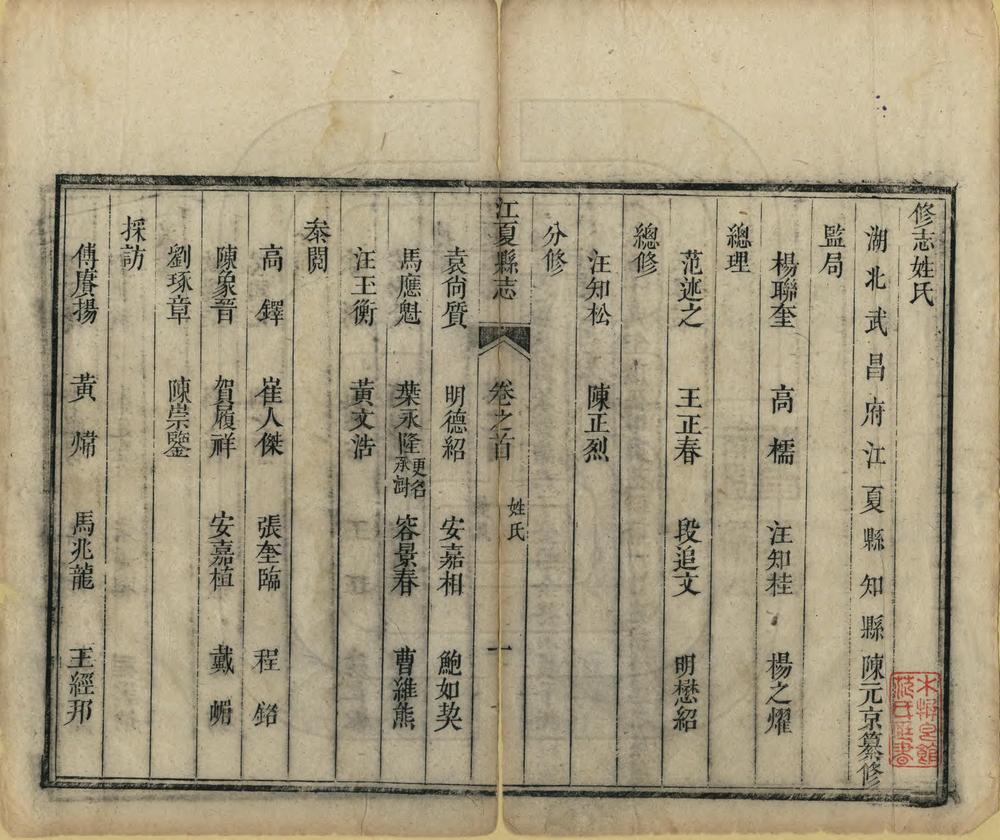 修志姓氏
湖北武昌府江夏縣知縣陳元京纂修
監局
楊聯奎 高檽 汪知桂 楊之燿
總理
范述之 王正春 段追文 明懋紹
總修
汪知松 陳正烈
分修
江夏縣志 卷之首 姓氏 一
袁尙質 明德紹 安嘉相 鮑如契
馬應魁 葉永隆更名承澍 容景春 曹維熊
汪王衡 黃文浩
叅閱
高鐸 崔人傑 張奎臨 程銘
陳象晉 賀履祥 安嘉植 戴嵋
劉琢章 陳崇鑒
採訪
傅賡揚 黃煒 馬兆龍 王經邦